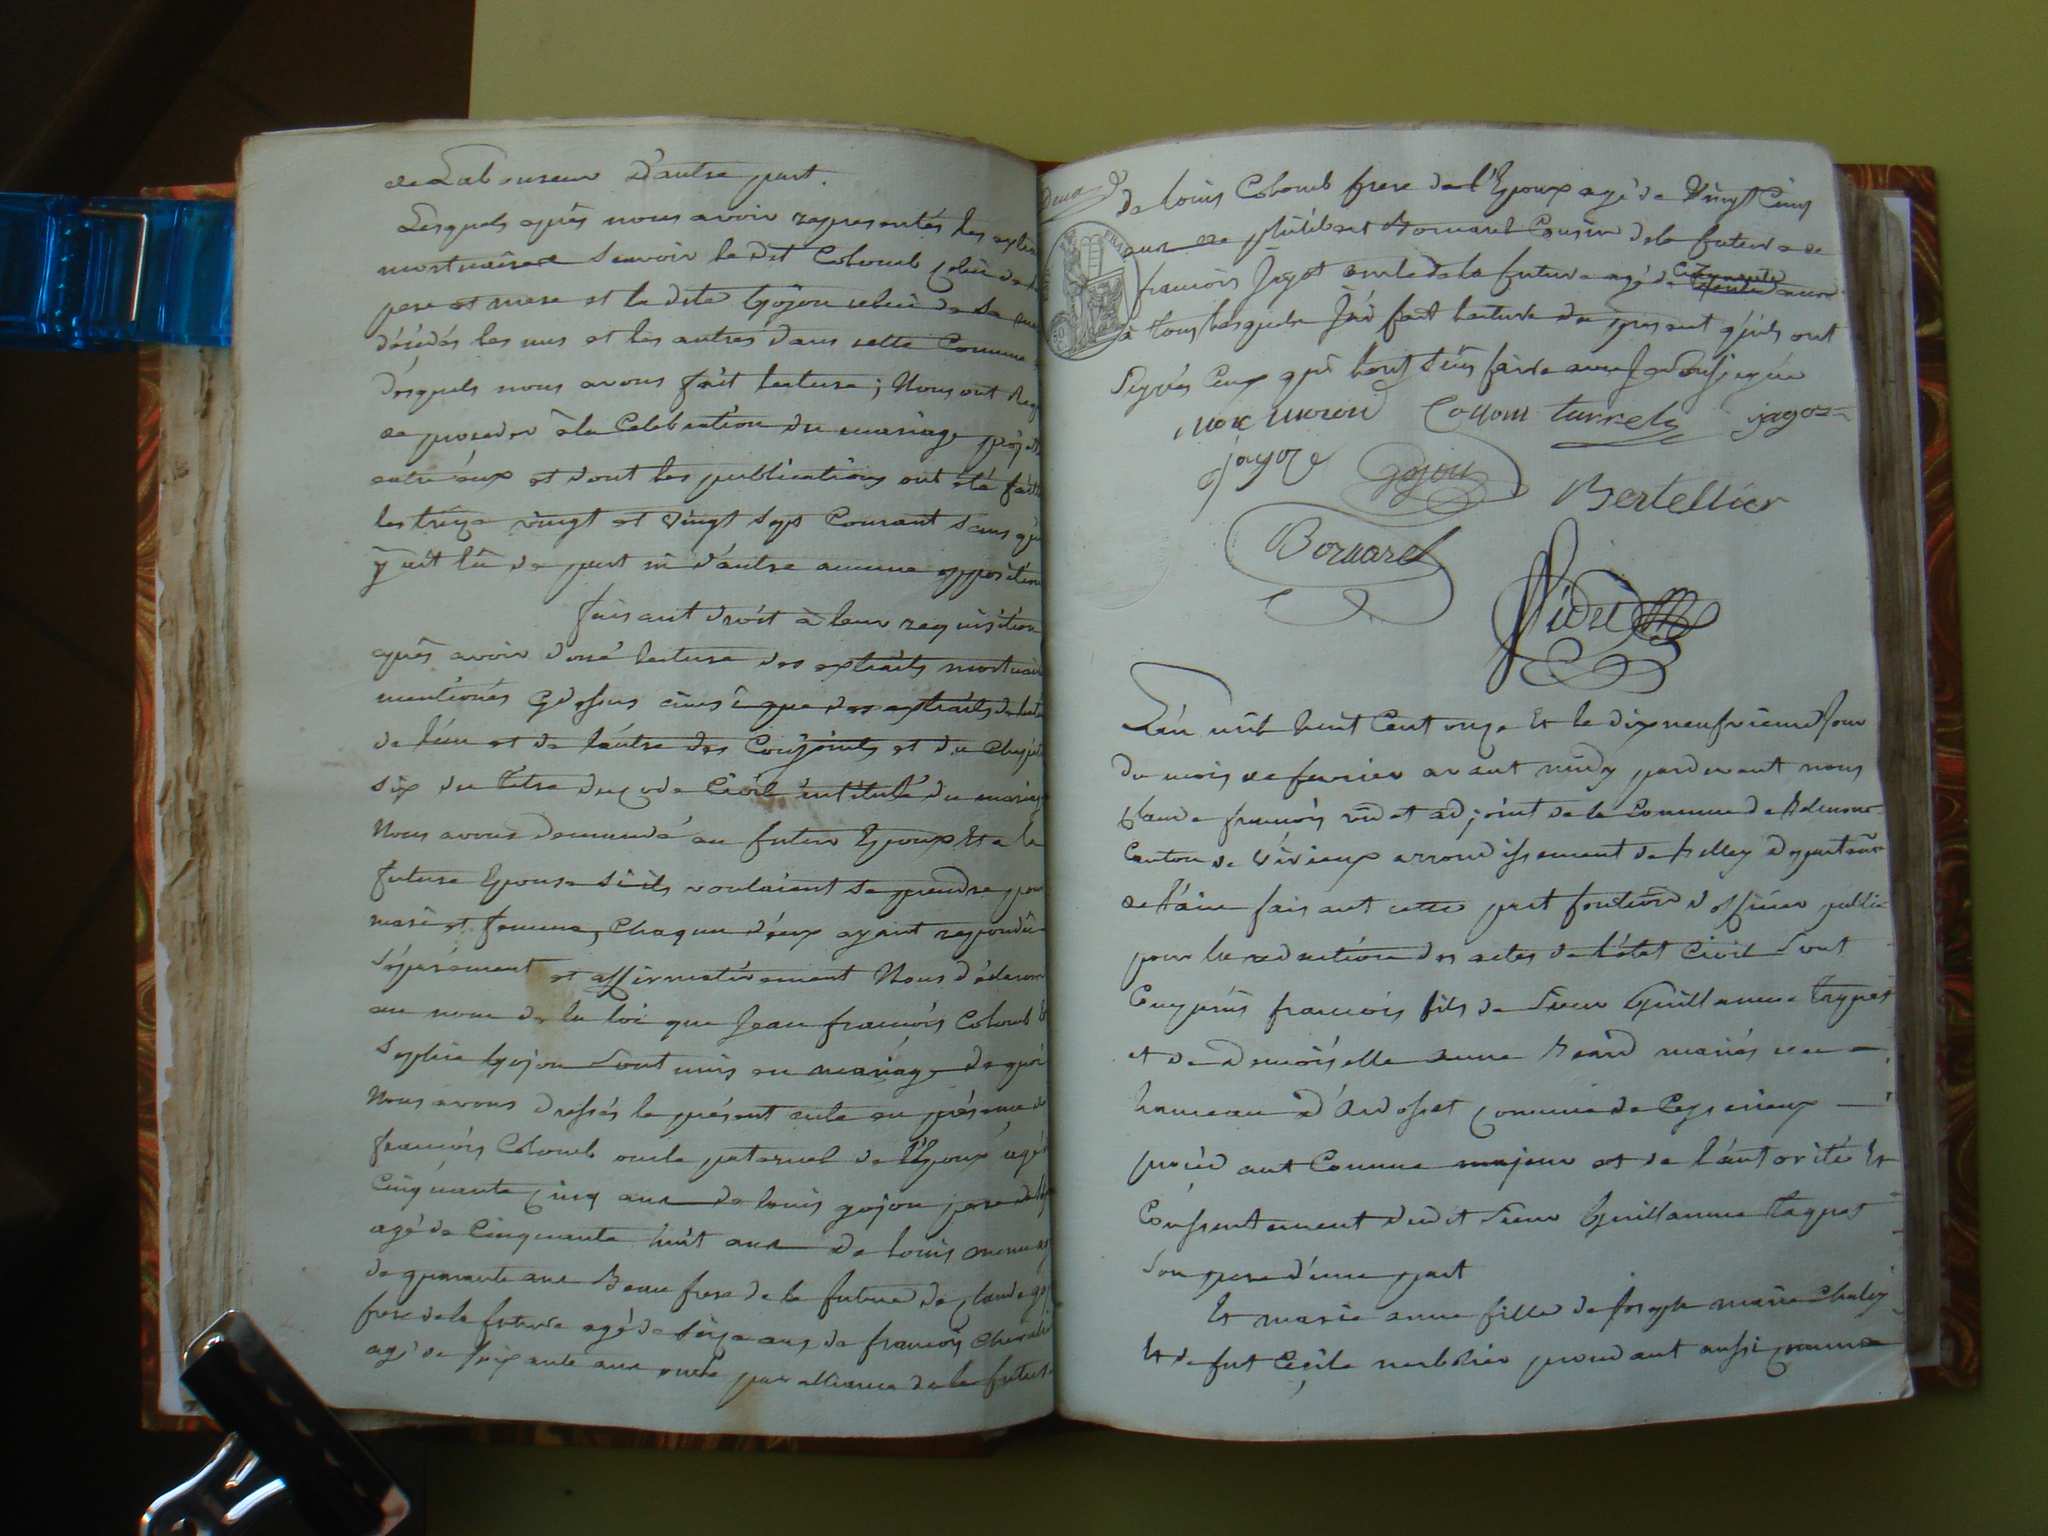 de Laboureur d'autre part.
Lesquels après nous avoir representés les
mortuaires Scavoir le dit Colomb celui de
pere et mere et la dite Gojon celui de Sa
décédés les uns et les autres dans cette Commune
desquels nous avons fait lecture; Nous ont
de proceder à la Celebration du mariage
entre eux et dont les publications ont été
les treize vingt et vingt sept Courant Sans
y ait Eu de part ni d'autre aucune opposition
faisant droit à leur requisition
après avoir doné lecture des extraits
mentionés Cydessus ainsi que des extraits de
de l'un et de l'autre des Conjoints et du
Six du titre du Code Civil intitulé du
Nous avons demandé au futur Epoux Et a la
future Epouse Si ils voulaient Se prendre pour
mari et femme, Chaqun d'eux ayant repondu
Séparément et affirmativement Nous déclarons
au nom de la loi que Jean francois Colomb
Sophie Gojon Sont unis en mariage de quoi
Nous avons dressés le présent acte en présence de
francois Colomb oncle paternel de l'Epoux agé
Cinquante Cinq ans de louis gojon pere
agé de Cinquante huit ans de louis
de quarante ans Beau frere de la future de Claude
frere de la future agé de Seize ans de francois
agé de Soixante ans oncle par alliance de la future
de louis Colomb frere de l'Epoux agé de Vingt Cinq
ans de philibert Bornarel Cousin de la future de
francois Jagot oncle de la future agé de
à tous lesquels J'ai fait lecture du present qu'ils ont
Signés Ceux qui l'ont Sçu faire
jagoz
jagoz Gojon Bertellier
Bornarel
Videt
L'an mil huit Cent onze Et le dix neufvieme Jour
du mois de fevrier avant midy pardevant nous
Claude francois videt adjoint de la Commune de
Canton de Virieux arrondissement de Belley departement
de l'ain faisant cette part fonction d'officier public
pour la redaction des actes de l'état Civil Sont
Comparus francois fils de Sieur Guillaume
et de Demoiselle anne mariés
hameau d'Ardosset Commune de Ceyserieux
procédant Comme majeur et de l'autorité Et
Consentement dudit Sieur Guillaume
Son pere d'une part
Et marie anne fille de Joseph marie
Et de fut Cécile procédant aussi comme